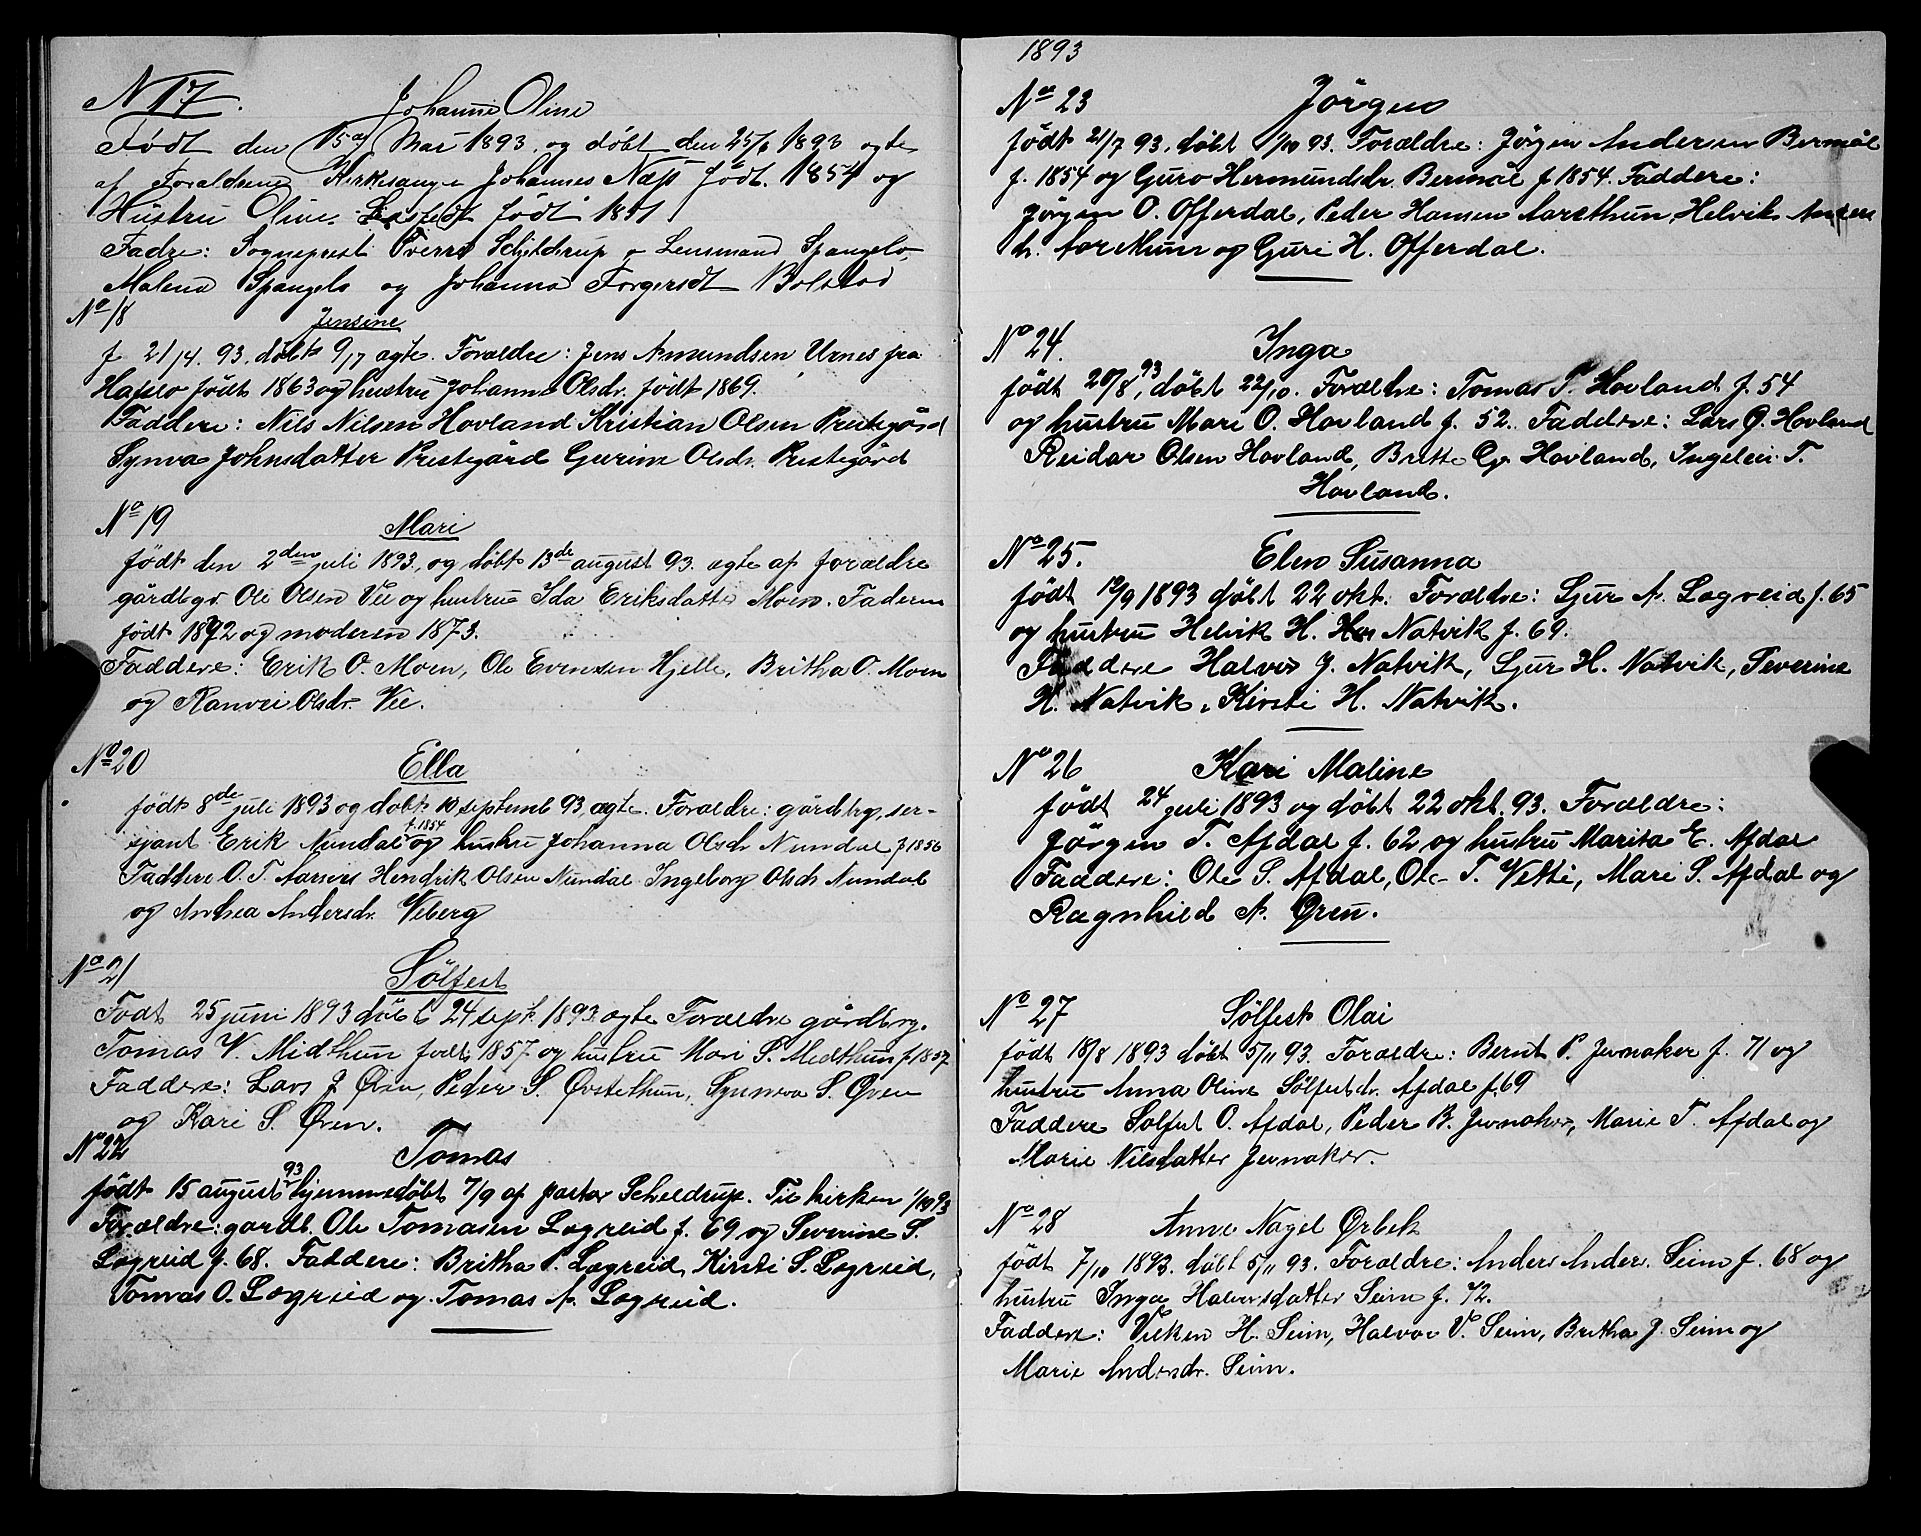 N 17. Johanne Oline
Født den 15de Mai 1893, og døbt den 25/6 1893 ægte
af Forældrene Kirkesanger Johannes Næss født. 1854 og
Hustru Oline født 1851
Fadre: Sogneprest Sverre Schjelderup o Lensmand Spangelo,
Malena Spangelo og Johanna Torgersdt Bolstad
No 18
Jensine
f. 21/4. 93. døbt 9/7 ægte. Forældre: Jens Amundsen Urnes fra
Hafslo født 1863 og hustru Johanne Olsdr. født 1869.
Faddere: Nils Nilsen Hovland Kristian Olsen Prestegård
Synva Johnsdatter Prestegård Gurine Olsdr. Prestegård
No 19
Mari
født den 2den juli 1893, og døbt 13de august 93. ægte af forældre
gårdbgr. Ole Olsen Vee og hustru Ida Eriksdatter Moen. Faderen
født 1872 og moderen 1873.
Faddere: Erik O. Moen, Ole Evensen Hjelle, Britha O. Moen
og Ranvei Olsdr. Vee.
No 20 Ella
født 8de juli 1893 og døbt 10 septemb 93, ægte. Forældre: gårdbrg, ser-
sjant Erik Nundal f. 1854 og hustru Johanna Olsdr Nundal f 1856
Faddere O. T. Hendrik Olsen Nundal Ingeborg Olsdr Nundal
og Anhea Andersdr. Veberg
No 21
Sølfest
Født 25 juni 1893 døbt 24 sept. 1893 ægte Forældre gårdbrg.
Tomas V. Midthun født 1857 og hustru Mari S. Midthun f 1857
Faddere: Lars J Øren, Peder S. Øvstethun, Synneva S. Øren
og Kari S. Øren.
No 22 Tomas
født 15 august 93 hjemmedøbt 7/9 af pastor Scheldrup. Til kirken 1/10 93
Forældre: gardb. Ole Tomasen Lægreid f. 69 og Severine S.
Lægreid f. 68. Faddere: Britha P. Lægreid, Kirsti S. Lægreid,
Tomas O. Lægreid og Tomas A. Lægreid.
1893
No 23 Jörgen
født 21/7 93, døbt 1/10 93. Forældre: Jørgen Andersen Bermål
f. 1854 og Guro Hermundsdr. Bermål f 1854. Faddere:
Jørgen O. Offerdal, Peder Hansen Aarethun, Helvik Anders
Aarethun og Guri H. Offerdal.
No 24. Inga
født 20/8 93, døbt 22/10. Forældre: Tomas T. Hovland f. 54
og hustru Mari O. Hovland f. 52. Faddere: Lars G. Hovland
Reidar Olsen Hovland, Britte Hovland, Ingelei T.
Hovland.
No 25. Elen Susanna
født 10/9 1893 døbt 22 okt. Forældre: Sjur A. Lægreid f. 65
og hustru Helvik H. Natvik f. 69.
Faddere Halvor J. Natvik, Sjur H. Natvik, Severine
H. Natvik, Kirsti H. Natvik.
No 26 Kari Maline
født 24 juli 1893 og døbt 22 okt. 93. Forældre:
Jørgen T. Afdal f. 62 og hustru Marita E. Afdal
Faddere: Ole S. Afdal, Ole T. Vetti, Mari S. Afdal og
Ragnhild A. Øren.
No 27 Sölfest Olai
født 18/8 1893 døbt 5/11 93. Forældre: Bernt P. Jevnaker f. 71 og
hustru Anna Oline Sølfestdr. Afdal f. 69
Faddere Solfest O. Afdal, Peder B. Jevnaker, Marie T. Afdal og
Marie Nilsdatter Jevnaker.
No 28 Anne Nagel Ørbek
født 7/10 1893. døbt 5/11 93. Forældre: Anders Anders. Seim f. 68 og
hustru Inga Halvorsdatter Seim f. 72.
Faddere: Vilken H. Seim, Halvor V. Seim, Britha J. Seim og
Marie Andersdr. Seim.